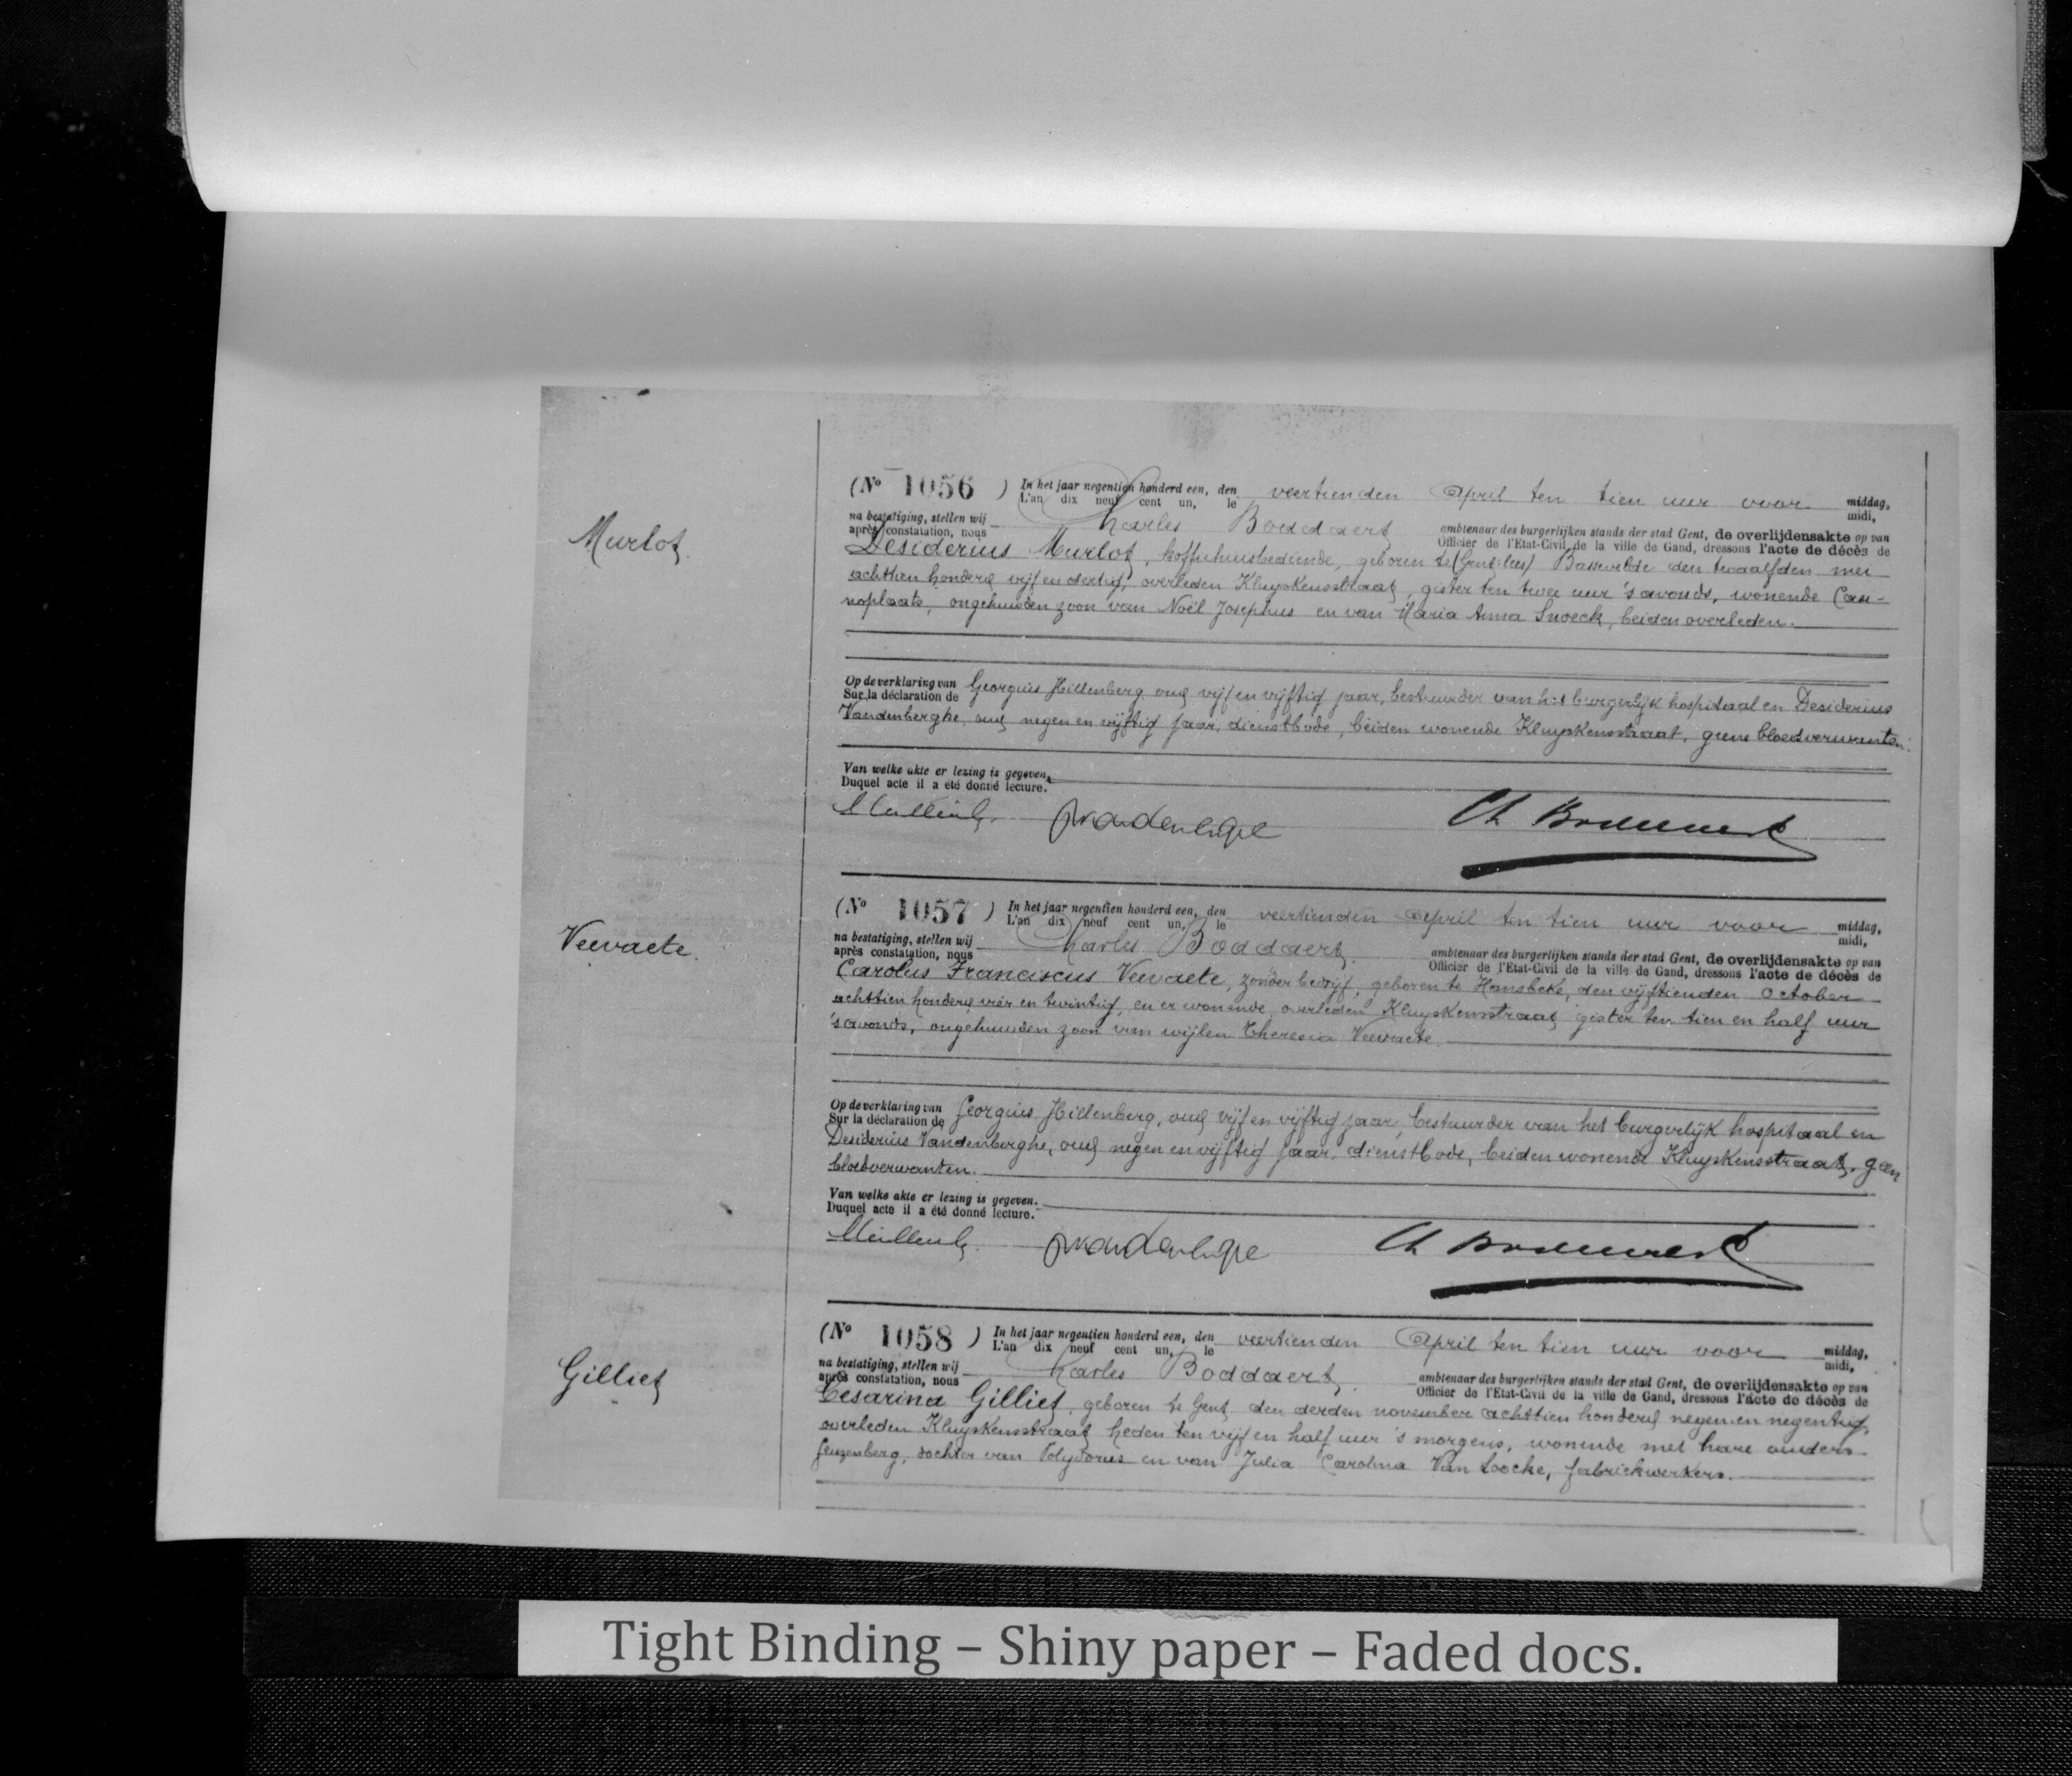 (No 1056 ) In het jaar negentien honderd een, den veertienden April ten tien uur voor middag,
L'an dix neuf cent un, le midi,
Murlot.
na bestatiging, stellen wij Charles Boddaert ambtenaar des burgerlijken stands der stad Gent, de overlijdensakte op van
après constatation, nous Officier de l'Etat-Civil de la ville de Gand, dressons l'acte de décès de
Desiderius Murlot, koffiehuisbediende, geboren te Bassevelde den twaalfden mei
achttien honderd vijf en dertig, overleden Kluyskensstraat, gister ten twee uur 's avonds, wonende Casi-
noplaats, ongehuwden zoon van Noël Josephus en van Maria Anna Snoeck, beiden overleden.
Op de verklaring van Georgius Hillenberg, oud vijf en vijftig jaar, bestuurder van het burgerlijk hospitaal en Desiderius
Sur la déclaration de
Vandenberghe, oud negen en vijftig jaar, dienstbode, beiden wonende Kluyskensstraat, geene bloedverwanten.
Van welke akte er lezing is gegeven.
Duquel acte il a été donné lecture.
Ch Boddaert
(No 1057 ) In het jaar negentien honderd een, den veertienden April ten tien uur voor middag,
L'an dix neuf cent un, le midi,
Vervaete.
na bestatiging, stellen wij Charles Boddaert. ambtenaar des burgerlijken stands der stad Gent, de overlijdensakte op van
après constatation, nous Officier de l'Etat-Civil de la ville de Gand, dressons l'acte de décès de
Carolus Franciscus Vervaete, zonder bedrijf, geboren te Hansbeke, den vijftienden October
achttien honderd vier en twintig, en er wonende, overleden Kluyskensstraat gister ten tien en half uur
's avonds, ongehuwden zoon van wijlen Theresia Vervaete.
Op de verklaring van Georgius Hillenberg, oud vijf en vijftig jaar, bestuurder van het burgerlijk hospitaal en
Sur la déclaration de
Desiderius Vandenberghe, oud negen en vijftig jaar, dienstbode, beiden wonende Kluyskensstraat, geen
bloedverwanten.
Van welke akte er lezing is gegeven.
Duquel acte il a été donné lecture.
Ch Boddaert
(No 1058 ) In het jaar negentien honderd een, den veertienden April ten tien uur voor middag,
L'an dix neuf cent un, le midi,
Gilliet
na bestatiging, stellen wij Charles Boddaert. ambtenaar des burgerlijken stands der stad Gent, de overlijdensakte op van
après constatation, nous Officier de l'Etat-Civil de la ville de Gand, dressons l'acte de décès de
Cesarina Gilliet, geboren te Gent den derden november achttien honderd negen en negentig,
overleden Kluyskensstraat heden ten vijf en half uur 's morgens, wonende met hare ouders
dochter van Polydorus en van Julia Carolina Van Loocke, fabriekwerkers.
Tight Binding – Shiny paper – Faded docs.